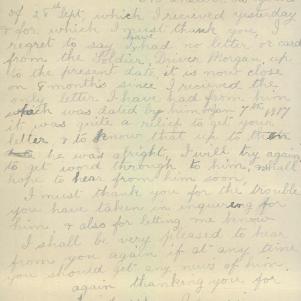 of 28th Sept, which I recieved yesterday
& for which I must thank you, I
regret to say I have had no letter or card
from the Soldier, Driver Morgan, up
to the present date, it is now close
on 8 months since I recieved the
only letter I have had from him
which was dated by him 7th 1917
it was quite a relief to get your
letter & to know that up to then
he was alright, I will try again
to get word through to him, & shall
hope to hear from him soon
I must thank you for the trouble
you have taken in inquering for
him, & also for letting me know
I shall be very pleased to hear
from you again if at any time
you should get any news of him.
again thanking you for